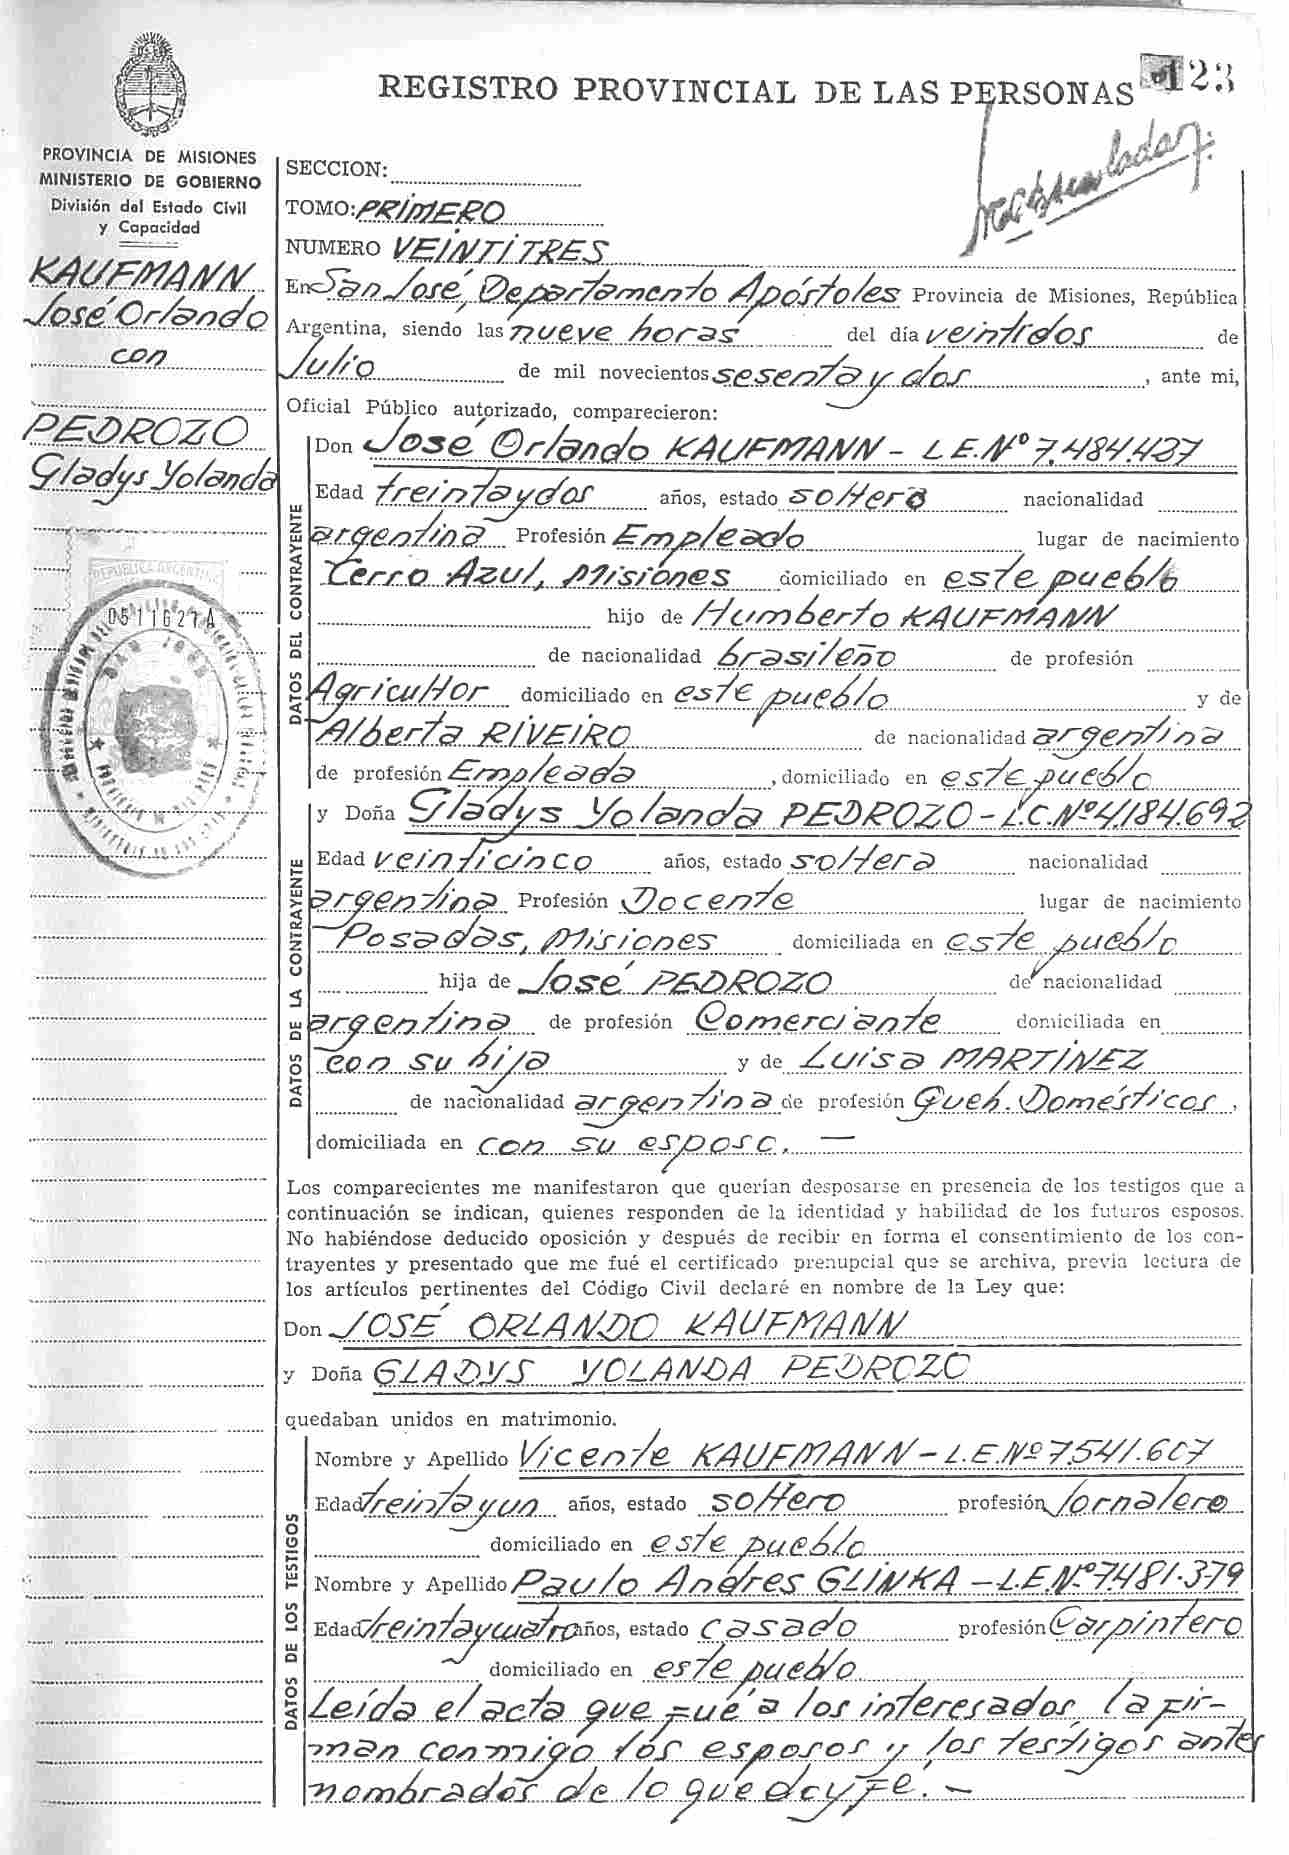 REGISTRO PROVINCIAL DE LAS PERSONAS
123
PROVINCIA DE MISIONES
MINISTERIO DE GOBIERNO
División del Estado Civil
y Capacidad
KAUFMANN
José Orlando
con
PEDROZO
Gladys Yolanda
REPUBLICA ARGENTINA
0511627A
SAN JOSE
SECCION:
TOMO: PRIMERO
NUMERO VEINTITRES
En San José, Departamento Apóstoles Provincia de Misiones, República
Argentina, siendo las nueve horas del día veintidos de
Julio de mil novecientos sesenta y dos, ante mi,
Oficial Público autorizado, comparecieron:
DATOS DEL CONTRAYENTE
Don José Orlando KAUFMANN - L.E. Nº 7.484.437
Edad treinta y dos años, estado soltero nacionalidad
argentina Profesión Empleado lugar de nacimiento
Cerro Azul, Misiones domiciliado en este pueblo
hijo de Humberto KAUFMANN
de nacionalidad brasileño de profesión
Agricultor domiciliado en este pueblo y de
Alberta RIVEIRO de nacionalidad argentina
de profesión Empleada, domiciliado en este pueblo
DATOS DE LA CONTRAYENTE
y Doña Gladys Yolanda PEDROZO - L.C. Nº 4.184.692
Edad veinticinco años, estado soltera nacionalidad
argentina Profesión Docente lugar de nacimiento
Posadas, Misiones domiciliada en este pueblo
hija de José PEDROZO de nacionalidad
argentina de profesión Comerciante domiciliada en
con su hija y de Luisa MARTÍNEZ
de nacionalidad argentina de profesión Queh. Domésticos,
domiciliada en con su esposo. —
Los comparecientes me manifestaron que querían desposarse en presencia de los testigos que a
continuación se indican, quienes responden de la identidad y habilidad de los futuros esposos.
No habiéndose deducido oposición y después de recibir en forma el consentimiento de los con-
trayentes y presentado que me fué el certificado prenupcial que se archiva, previa lectura de
los artículos pertinentes del Código Civil declaré en nombre de la Ley que:
Don JOSÉ ORLANDO KAUFMANN
y Doña GLADYS YOLANDA PEDROZO
quedaban unidos en matrimonio.
DATOS DE LOS TESTIGOS
Nombre y Apellido Vicente KAUFMANN - L.E. Nº 7.541.607
Edad treinta y un años, estado soltero profesión Jornalero
domiciliado en este pueblo
Nombre y Apellido Paulo Andres GLINKA - L.E. Nº 7.481.379
Edad treinta y cuatro años, estado casado profesión Carpintero
domiciliado en este pueblo
Leída el acta que fué a los interesados, la fir-
man conmigo los esposos y los testigos antes
nombrados de lo que doy fé. -